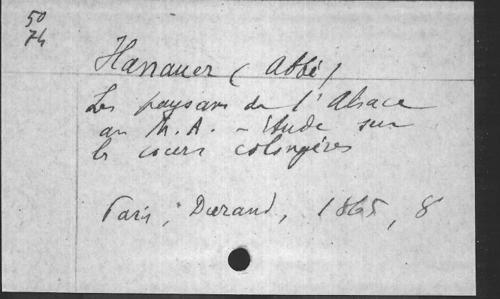 50
74
Hanauer (Abbé)
Les paysans de l'Alsace
au M.A. - étude sur
les cours colongères
Paris, Durand, 1865, 8